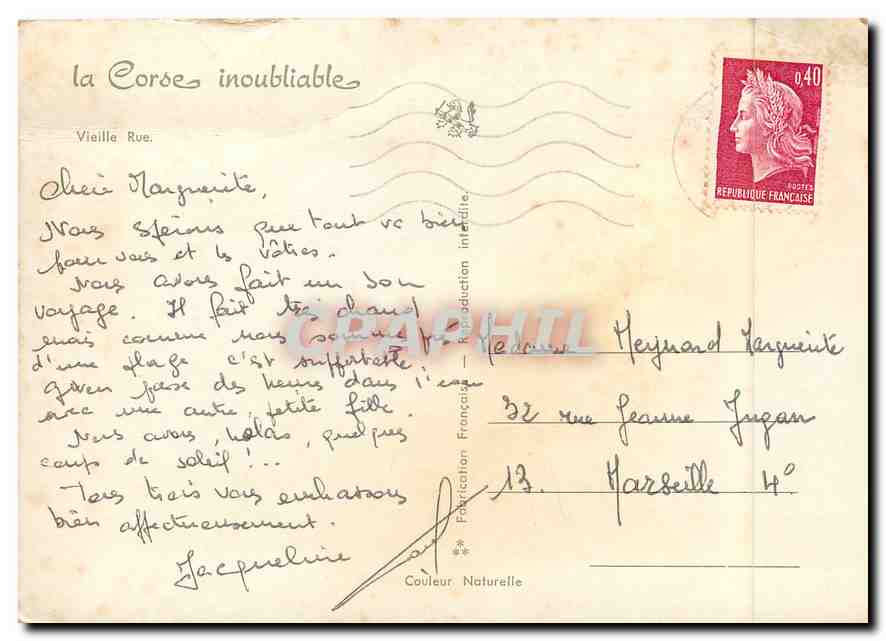 la Corse inoubliable
Vieille Rue.
0,40
POSTES
REPUBLIQUE FRANÇAISE
Chère Marguerite,
Nous spérons que tout va bien
pour vous et les vôtres.
Nous avons fait un bon
voyage. Il fait très chaud
mais comme nous sommes près
d'une plage c'est supportable.
passe des heures dans l'eau
avec une autre petite fille.
Nous avons, hélas, quelques
coups de soleil !...
Tous trois vous embrassons
bien affectueusement.
Jacqueline
Madame Meynard Marguerite
32 rue Jeanne Jugan
13. Marseille 4°
** Fabrication Française - Reproduction interdite.
Couleur Naturelle
CPAPHIL